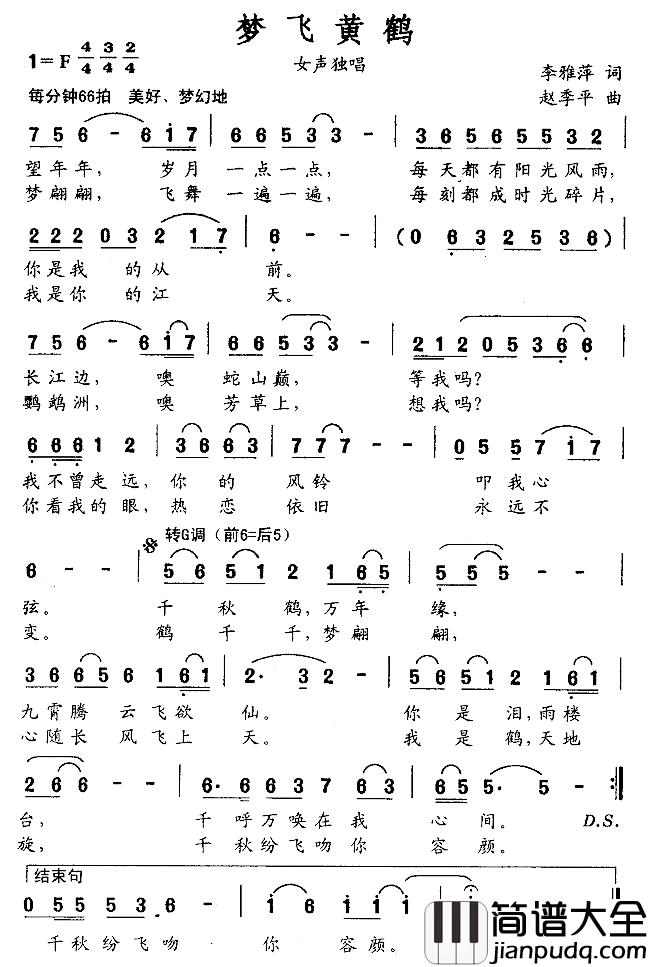 梦飞黄鹤
1=F 4/4 3/4 2/4
女声独唱
李雅萍 词
每分钟66拍 美好、梦幻地
赵季平 曲
7 5 6 - 6 i 7 | 6 6 5 3 3 - | 3 6 5 6 5 5 3 2 |
望年年， 岁月 一点一点， 每天都有阳光风雨，
梦翩翩， 飞舞 一遍一遍， 每刻都成时光碎片，
2 2 2 0 3 2 1 7 | 6 - - | (0 6 3 2 5 3 6) |
你是我 的从 前。
我是你 的江 天。
7 5 6 - 6 i 7 | 6 6 5 3 3 - | 2 1 2 0 5 3 6 6 |
长江边， 噢 蛇山巅， 等我吗？
鹦鹉洲， 噢 芳草上， 想我吗？
6 6 6 1 2 | 3 6 6 3 | 7 7 7 - | 0 5 5 7 i 7 |
我不曾走远，你的 风铃 叩我心
你看我的眼，热恋 依旧 永远不
转G调（前6=后5）
6 - | 5 6 5 1 2 1 6 5 | 5 5 5 - - |
弦。 千秋鹤，万年 缘，
变。 鹤千千，梦翩 翩，
3 6 6 5 6 1 6 1 | 2· 3 2 - | 5 6 5 1 2 1 6 1 |
九霄腾云飞欲 仙。 你是泪，雨楼
心随长风飞上 天。 我是鹤，天地
2 6 6 - - | 6· 6 6 3 7 6 3 | 6 5 5· 5 - :||
台， 千呼万唤在我 心间。 D.S.
旋， 千秋纷飞吻你 容颜。
结束句
0 5 5 5 3 6 - | 6 i - i | i i - - ||
千秋纷飞吻 你 容颜。
简谱大全
jianpudq.com